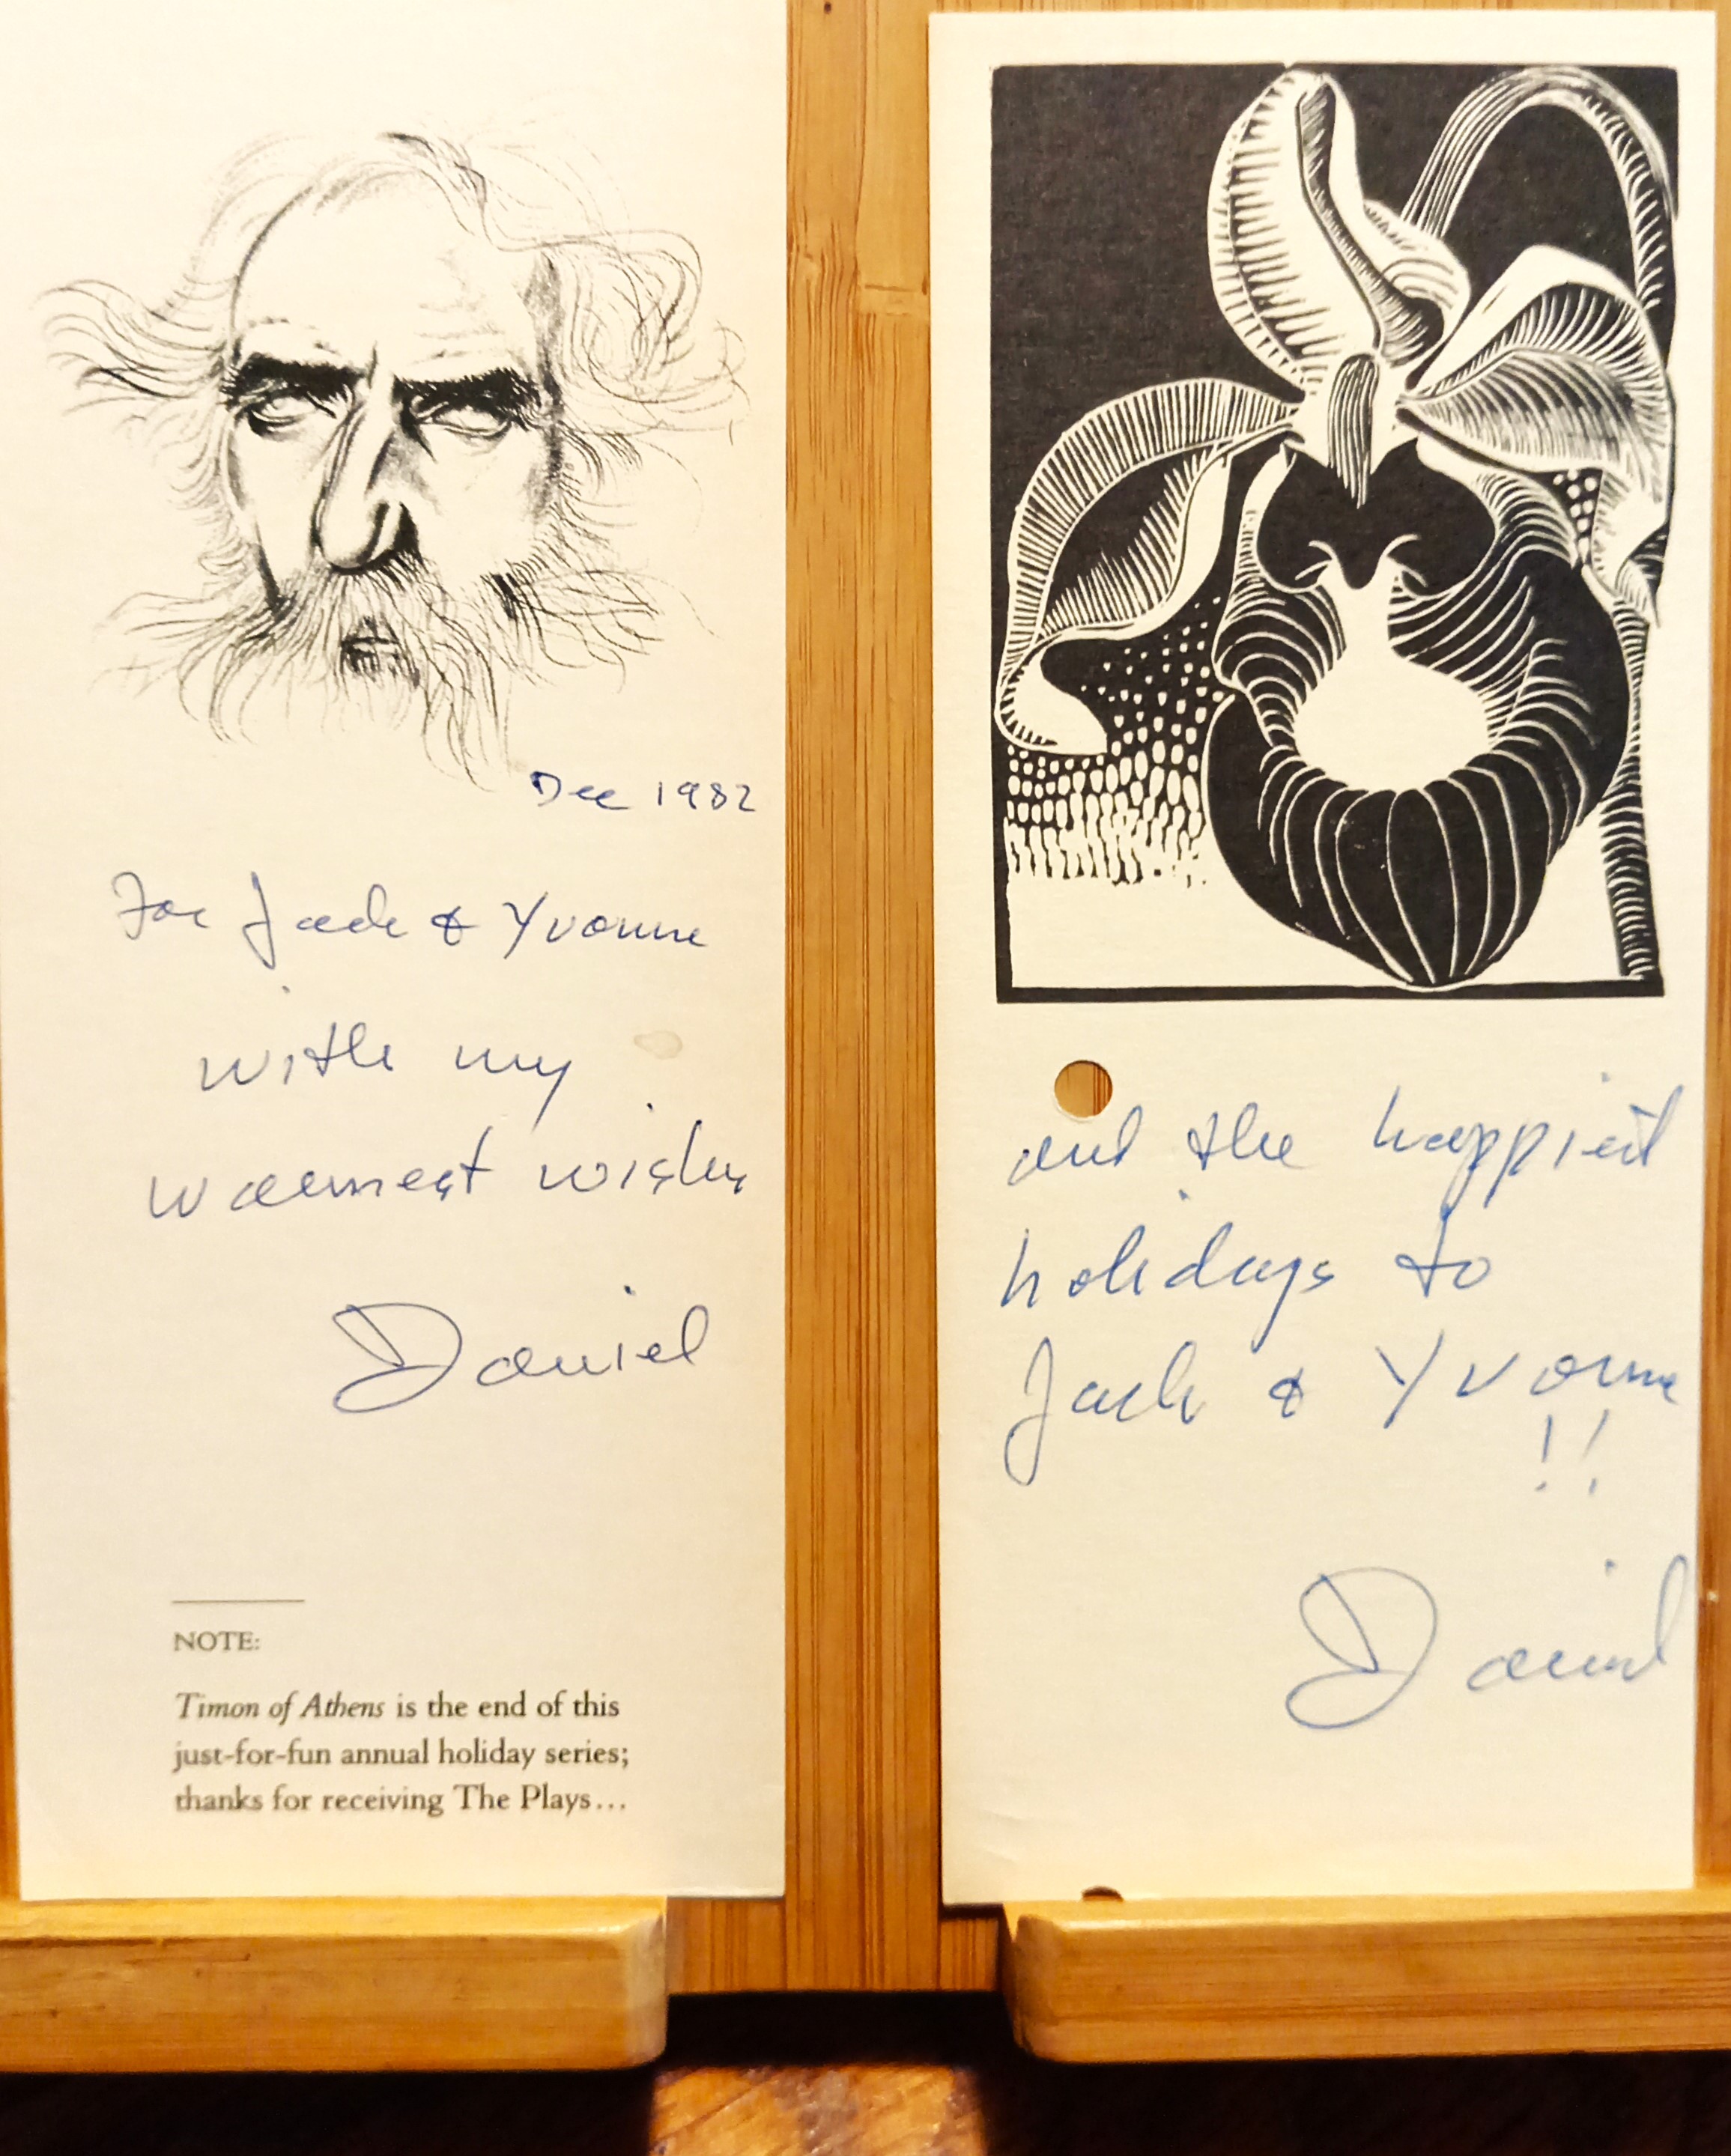 Dec 1982
For Jack & Yvonne
with my
warmest wishes
Daniel
NOTE:
Timon of Athens is the end of this
just-for-fun annual holiday series;
thanks for receiving The Plays...
and the happiest
holidays to
Jack & Yvonne
!!
Daniel